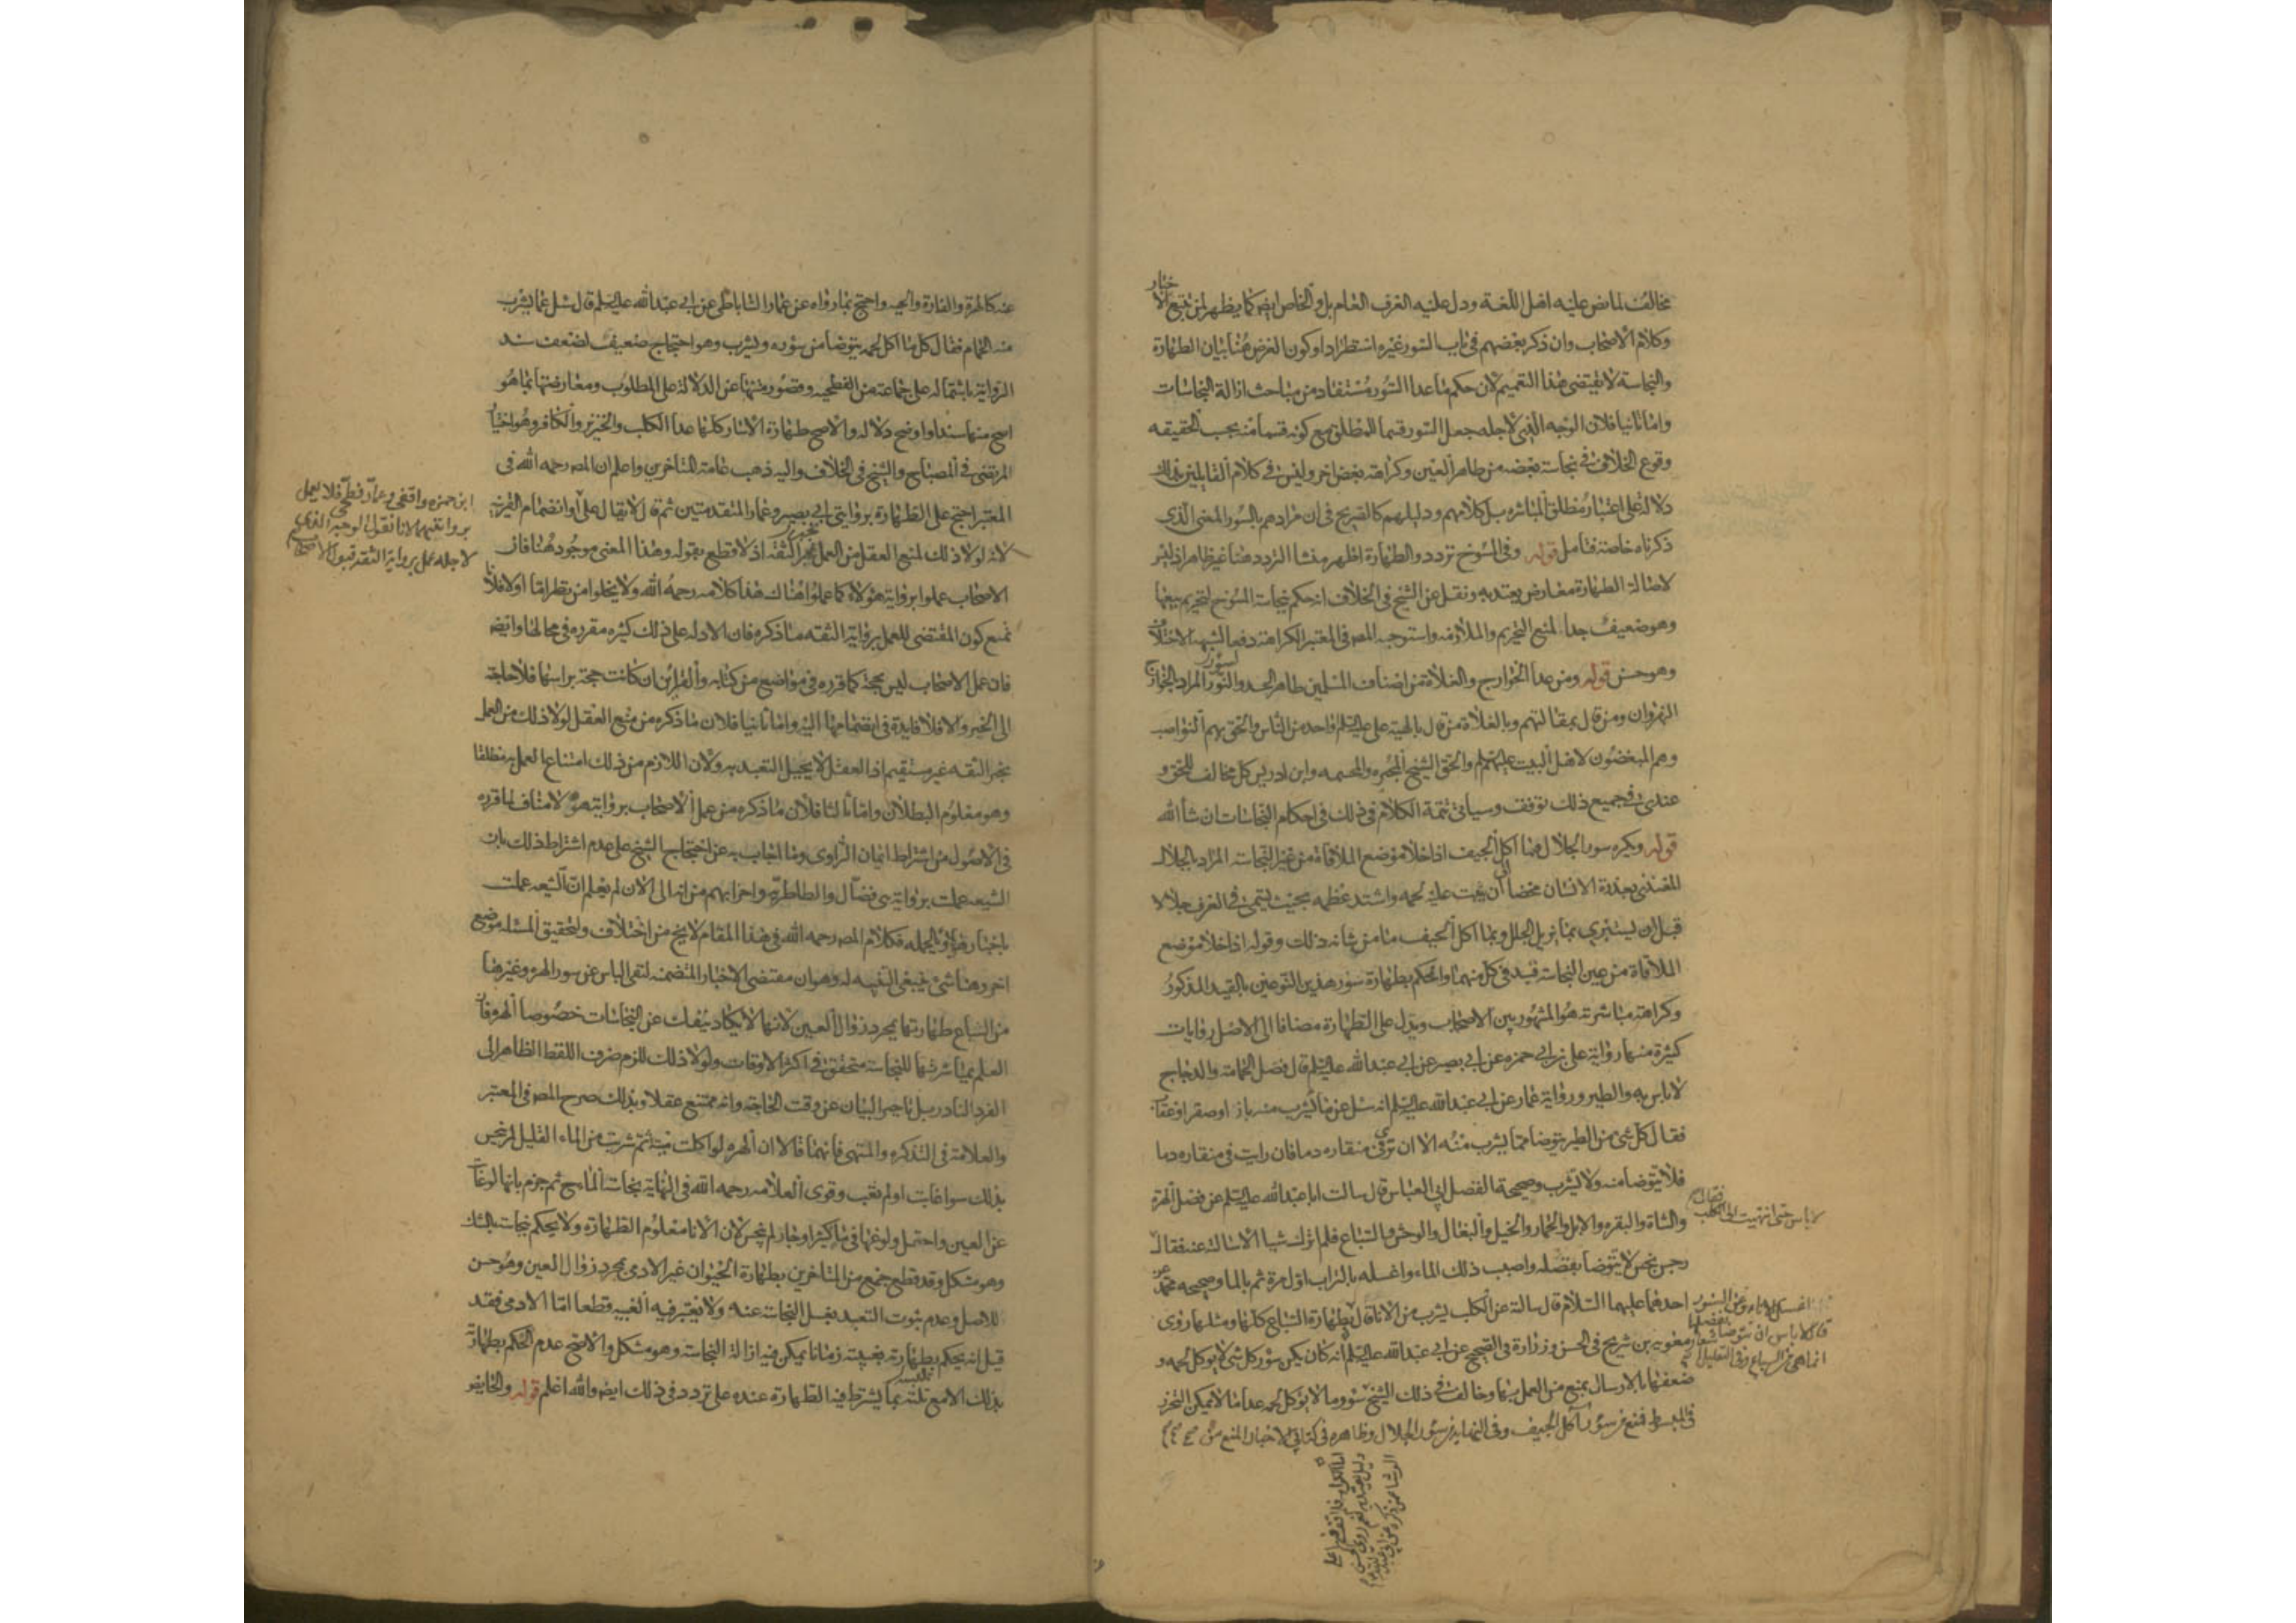 مخالف لما نص عليه اهل اللغة ودل عليه العرف العام بل والخاص ايض كما يظهر لمن تتبع الاخبار
وكلام الاصحاب وان ذكر بعضهم في باب السور غيره استطرادا وكون الغرض هنا بيان الطهارة
والنجاسة لا يقتضي هذا التعميم لان حكم ما عدا السور مستفاد من مباحث ازالة النجاسات
واما ثانيا فلان الوجه الذي لاجله جعل السور قسيما للمطلق مع كونه قسما منه بحسب الحقيقه
وقوع الخلاف في نجاسة بعضه من طاهر العين وكراهة بعض اخر وليس في كلام القايلين بذلك
دلالة على اعتبار مطلق المباشره بل كلامهم ودليلهم كالصريح في ان مرادهم بالسور المعنى الذي
ذكرناه خاصة فتامل قوله وفي المسوخ تردد والطهارة اظهر منشا التردد هنا غير ظاهر اذ ليس
لاصالة الطهارة معارض يعتد به ونقل عن الشيخ في الخلاف انه حكم بنجاسة المسوخ لتحريم بيعها
وهو ضعيف جدا لمنع التحريم والملازمه واستوجه المص في المعتبر الكراهة دفعا لشبهة الاختلاف
وهو حسن قوله ومن عدا الخوارج والغلاة من اصناف المسلمين طاهر الجسد والسور المراد بالخوارج اهل
النهروان ومن قال بمقالتهم وبالغلاة من قال بالهية علي عليه السلم او احد من الناس والحق بهم النواصب
وهم المبغضون لاهل البيت عليهم السلم والحق الشيخ المجبره والمجسمه وابن ادريس كل مخالف للحق و
عندي في جميع ذلك توقف وسياتي تتمة الكلام في ذلك في احكام النجاسات ان شا الله
قوله ويكره سور الجلال وما اكل الجيف اذا خلا موضع الملاقاة من عين النجاسة المراد بالجلال
المغتذي بعذرة الانسان محضا الى ان ينبت عليه لحمه واشتد عظمه بحيث يسمى في العرف جلالا
قبل ان يستبرى بما يزيل الجلل وبما اكل الجيف ما من شانه ذلك وقوله اذا خلا موضع
الملاقاة من عين النجاسة قيد في كل منهما والحكم بطهارة سور هذين النوعين بالقيد المذكور
وكراهة مباشرته هو المشهور بين الاصحاب ويدل على الطهارة مضافا الى الاصل روايات
كثيرة منها رواية علي بن ابي حمزه عن ابي بصير عن ابي عبد الله عليه السلم قال فضل الحمامة والدجاج
لا باس به والطير ورواية عمار عن ابي عبد الله عليه السلم انه سئل عن ما يشرب منه باز او صقر او عقاب
فقال كل شي من الطير يتوضا مما يشرب منه الا ان ترى في منقاره دما فان رايت في منقاره دما
فلا يتوضا منه ولا يشرب وصحيحة الفضل ابي العباس قال سالت ابا عبد الله عليه السلم عن فضل الهرة
والشاة والبقره والابل والحمار والخيل والبغال والوحش والسباع فلم اترك شيا الا سالته عنه فقال
لا باس حتى انتهيت الى الكلب فقال
رجس نجس لا يتوضا بفضله واصبب ذلك الماء واغسله بالتراب اول مرة ثم بالما وصحيحه محمد عن
احدهما عليهما السلام قال سالته عن الكلب يشرب من الانا قال
اغسل الاناء وعن السنور
قال لا باس ان يتوضا بفضلها
انما هي من السباع وفي التعليل اشعار
بطهارة السباع كلها ومثلها روى
معويه بن شريح في الحسن وزرارة في الصحيح عن ابي عبد الله عليه السلم انه كان يكره سور كل شي لا يوكل لحمه و
ضعفها بالارسال يمنع من العمل بها وخالف في ذلك الشيخ سور ما لا يوكل لحمه عدا ما لا يمكن التحرز
في المبسوط فمنع من سور آكل الجيف وفي النهايه من سور الجلال وظاهره في كتابي الاخبار المنع من
عنه كالهرة والفارة والحيه واحتج بما رواه عن عمار الساباطي عن ابي عبد الله عليه السلم قال سئل عما يشرب
منه الحمام فقال كل ما اكل لحمه يتوضا من سوره ويشرب وهو احتجاج ضعيف لضعف سند
الرواية باشتماله على جماعة من الفطحيه وقصور متنها عن الدلالة على المطلوب ومعارضتها بما هو
اصح منها سندا واوضح دلاله والاصح طهارة الاسار كلها عدا الكلب والخنزير والكافر وهو اختيار
المرتضى في المصباح والشيخ في الخلاف واليه ذهب عامة المتاخرين واعلم ان المص رحمه الله في
المعتبر احتج على الطهارة بروايتي ابي بصير وعمار المتقدمتين ثم قال لا يقال علي
ابن حمزه واقفي وعمار فطحي فلا يعمل
بروايتهما لانا نقول الوجه الذي
لاجله عمل برواية الثقة قبول الاصحاب
او انضمام القرينة
لانه لولا ذلك لمنع العقل من العمل بخبر الثقة اذ لا قطع بقوله وهذا المعنى موجود هنا فان
الاصحاب عملوا برواية هؤلاء كما عملوا هناك هذا كلامه رحمه الله ولا يخلوا من نظر اما اولا فلانا
نمنع كون المقتضي للعمل برواية الثقه ما ذكره فان الادله على ذلك كثيره مقرره في محالها وايضا
فان عمل الاصحاب ليس بحجة كما قرره في مواضع من كتابه والقراين ان كانت حجة براسها فلا حاجة
الى الخبر والا فلا فايدة في انضمامها اليه واما ثانيا فلان ما ذكره من منع العقل لولا ذلك من العمل
بخبر الثقه غير مستقيم اذ العقل لا يحيل التعبد به ولان اللازم من ذلك امتناع العمل به مطلقا
وهو معلوم البطلان واما ثالثا فلان ما ذكره من عمل الاصحاب برواية هؤلاء مناف لما قرره
في الاصول من اشتراط ايمان الراوي وما اجاب به عن احتجاج الشيخ على عدم اشتراط ذلك بان
الشيعه عملت برواية بني فضال والطاطريه واضرابهم من انه الى الان لم يعلم ان الشيعه عملت
باخبار هؤلاء وبالجمله فكلام المص رحمه الله في هذا المقام لا يخ من اختلاف ولتحقيق المسئله موضع
اخر وهنا شي ينبغي التنبيه له وهو ان مقتضى الاخبار المتضمنه لنفي الباس عن سور الهره وغيرها
من السباع طهارتها بمجرد زوال العين لانها لا يكاد ينفك عن النجاسات خصوصا الهره فان
العلم بمباشرتها للنجاسة متحقق في اكثر الاوقات ولولا ذلك للزم صرف اللفظ الظاهر الى
الفرد النادر بل تاخير البيان عن وقت الحاجة وانه ممتنع عقلا وبذلك صرح المص في المعتبر
والعلامة في التذكره والمنتهى فانهما قالا ان الهره لو اكلت ميته ثم شربت من الماء القليل لم ينجس
بذلك سوا غابت او لم تغب وقوى العلامه رحمه الله في النهاية نجاسة الماء ح ثم جزم بانها لو غابت
عن العين واحتمل ولوغها في ماء كثير او جار لم ينجس لان الانا معلوم الطهارة ولا يحكم بنجاسته بالشك
وهو مشكل وقد قطع جمع من المتاخرين بطهارة الحيوان غير الادمي بمجرد زوال العين وهو حسن
للاصل وعدم ثبوت التعبد بغسل النجاسة عنه ولا يعتبر فيه الغيبه قطعا اما الادمي فقد
قيل انه يحكم بطهارته بغيبته زمانا يمكن فيه ازالة النجاسة وهو مشكل والاصح عدم الحكم بطهارته
بذلك الا مع تلبسه بما يشترط فيه الطهارة عنده على تردد في ذلك ايض والله اعلم قوله والحايض